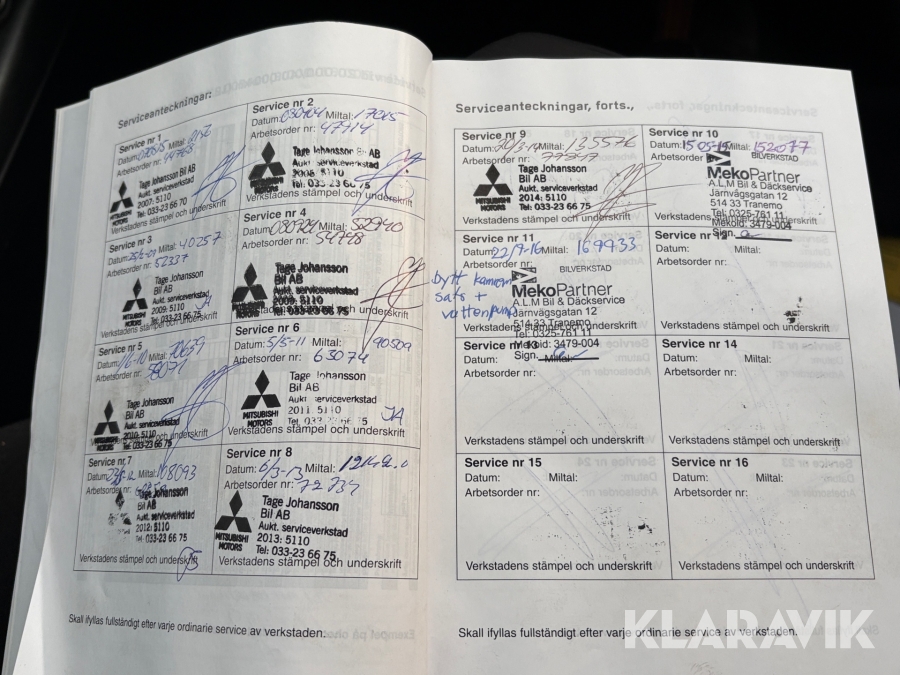 Serviceanteckningar:
Service nr 1
Datum: Miltal:
Arbetsorder nr:
Tage Johansson
Bil AB
Aukt. serviceverkstad
2007: 5110
Tel: 033-23 66 70
MITSUBISHI
MOTORS
Verkstadens stämpel och underskrift
Service nr 2
Datum: Miltal:
Arbetsorder nr: 47914
Tage Johansson Bil AB
Aukt. serviceverkstad
2008: 5110
Tel: 033-23 66 75
MITSUBISHI
MOTORS
Verkstadens stämpel och underskrift
Service nr 3
Datum: Miltal: 40257
Arbetsorder nr: 52337
Tage Johansson
Bil AB
Aukt. serviceverkstad
2009: 5110
Tel: 033-23 66 75
MITSUBISHI
MOTORS
Verkstadens stämpel och underskrift
Service nr 4
Datum: Miltal:
Arbetsorder nr:
Tage Johansson
Bil AB
Aukt. serviceverkstad
2009: 5110
Tel: 033-23 66 75
MITSUBISHI
MOTORS
Verkstadens stämpel och underskrift
Service nr 5
Datum: Miltal: 70639
Arbetsorder nr:
Tage Johansson
Bil AB
Aukt. serviceverkstad
2010: 5110
Tel: 033-23 66 75
MITSUBISHI
MOTORS
Verkstadens stämpel och underskrift
Service nr 6
Datum: 5/5-11 Miltal: 90509
Arbetsorder nr: 63074
Tage Johansson
Bil AB
Aukt. serviceverkstad
2011: 5110
Tel: 033-23 66 75
MITSUBISHI
MOTORS
JA
Verkstadens stämpel och underskrift
Service nr 7
Datum: Miltal: 108093
Arbetsorder nr:
Tage Johansson
Bil AB
Aukt. serviceverkstad
2012: 5110
Tel: 033-23 66 75
Verkstadens stämpel och underskrift
Service nr 8
Datum: 6/3-13 Miltal:
Arbetsorder nr: 72737
Tage Johansson
Bil AB
Aukt. serviceverkstad
2013: 5110
Tel: 033-23 66 75
MITSUBISHI
MOTORS
Verkstadens stämpel och underskrift
Skall ifyllas fullständigt efter varje ordinarie service av verkstaden.
Serviceanteckningar, forts.,
Service nr 9
Datum: 20/3-14 Miltal: 135576
Arbetsorder nr:
Tage Johansson
Bil AB
Aukt. serviceverkstad
2014: 5110
Tel: 033-23 66 75
MITSUBISHI
MOTORS
Verkstadens stämpel och underskrift
Service nr 10
Datum: Miltal: 152077
Arbetsorder
BILVERKSTAD
MekoPartner
A.L.M Bil & Däckservice
Järnvägsgatan 12
514 33 Tranemo
Tel: 0325-761 11
Mekoid: 3479-004
Sign.
Verkstadens stämpel och underskrift
Service nr 11
Datum: 22/9-16 Miltal: 169933
Arbetsorder nr:
BILVERKSTAD
MekoPartner
A.L.M Bil & Däckservice
Järnvägsgatan 12
514 33 Tranemo
Tel: 0325-761 11
Mekoid: 3479-004
Sign.
Verkstadens stämpel och underskrift
bytt kamrem
sats +
vattenpump
Service nr 12
Datum: Miltal:
Arbetsorder nr:
Verkstadens stämpel och underskrift
Service nr 13
Datum: Miltal:
Arbetsorder nr:
Verkstadens stämpel och underskrift
Service nr 14
Datum: Miltal:
Arbetsorder nr:
Verkstadens stämpel och underskrift
Service nr 15
Datum: Miltal:
Arbetsorder nr:
Verkstadens stämpel och underskrift
Service nr 16
Datum: Miltal:
Arbetsorder nr:
Verkstadens stämpel och underskrift
Skall ifyllas fullständigt efter varje ordinarie service av verkstaden.
KLARAVIK